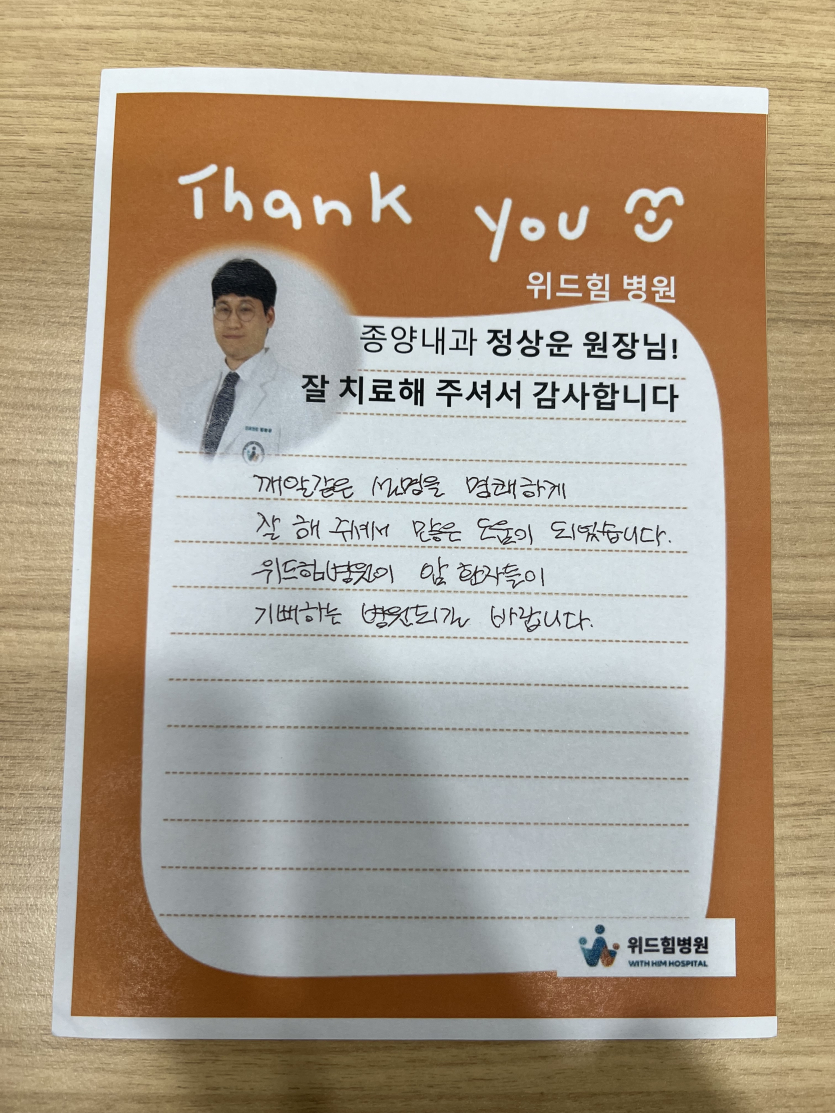 Thank you
위드힘 병원
종양내과 정상운 원장님!
잘 치료해 주셔서 감사합니다
깨알같은 설명을 명쾌하게
잘 해 주셔서 많은 도움이 되었습니다.
위드힘병원이 암 환자들이
기뻐하는 병원되길 바랍니다.
위드힘병원
WITH HIM HOSPITAL